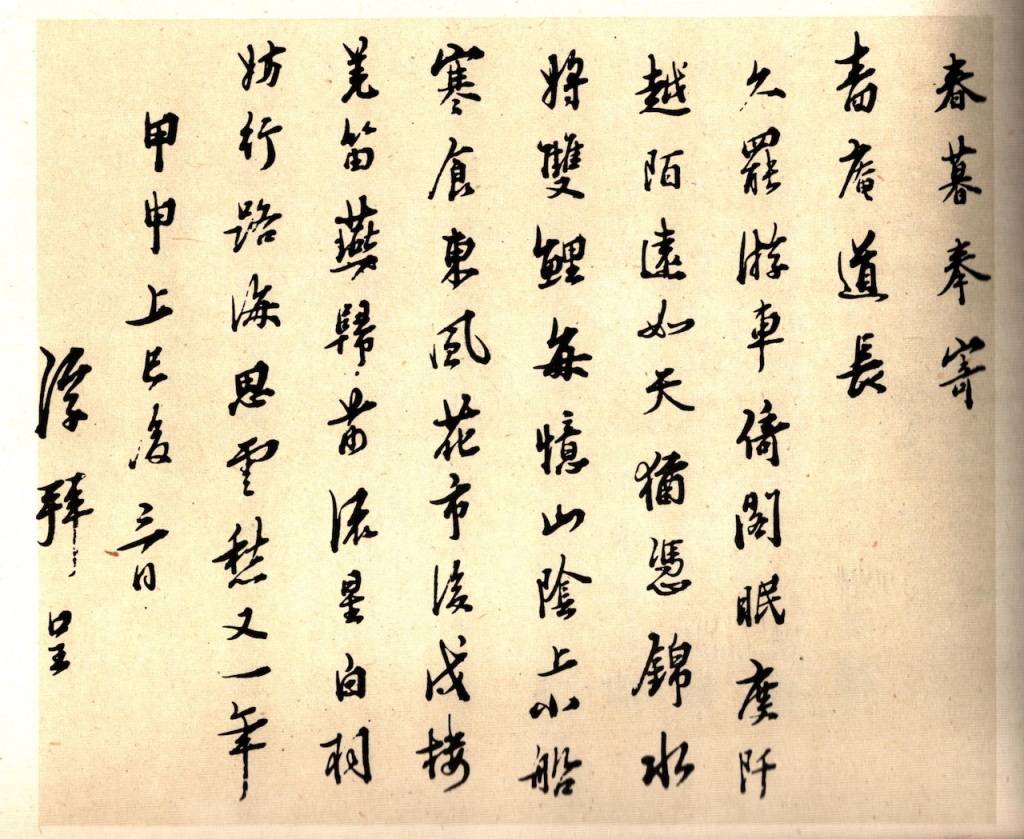 春暮奉寄
嗇庵道長
久罷游車倚閣眠度阡
越陌遠如天猶憑錦水
將雙鯉每憶山陰上小船
寒食東風花市後戍樓
羌笛燕歸前流星白羽
妨行路海思雲愁又一年
甲申上巳後三日
浮拜呈